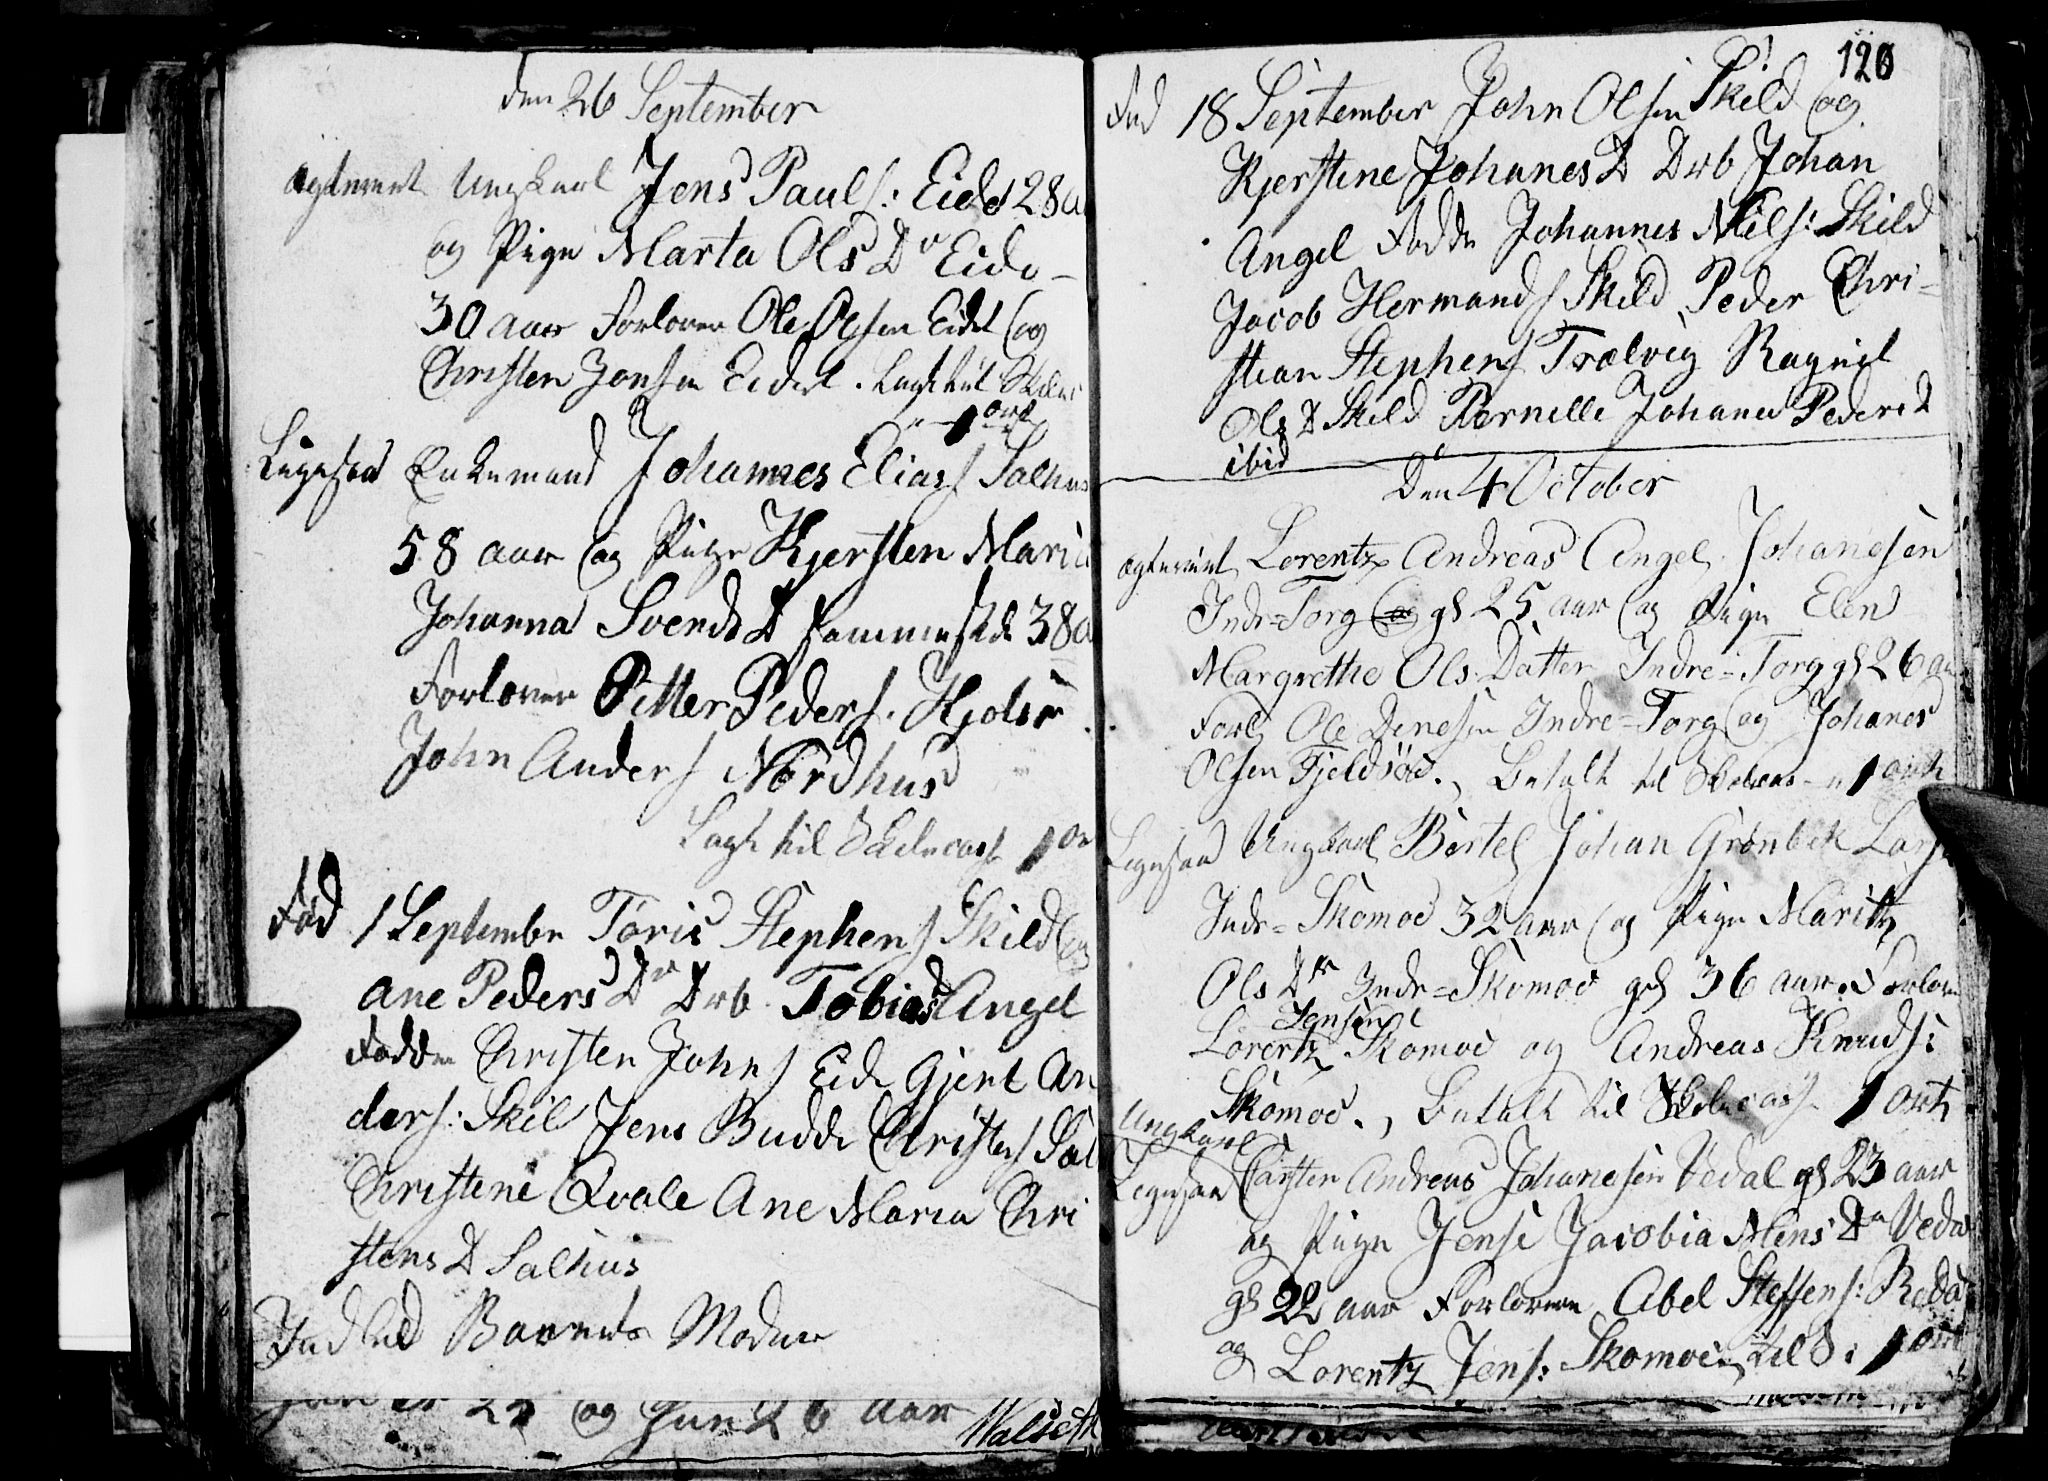 den 26 September
ægteviet Ungkarl Jens Pauls: Eide 28 a
og Pige Marta Ols Dr Eide -
30 aar Forlover Ole Olsen Eidet og
Christen Jonsen Eidet . Lagt til Skolec
1 ort
Ligesaa Enkemand Johannes Eliass Salhus
58 aar og Pige Kjersten Maria
Johanna Svends D sammested 38 a
Forlover Petter Peders.
John Anders Nordhus
Lagt til Skolecass 1 or
Fød 1 September Toris Stephens Skild og
Ane Peders Dr Drb Tobias Angel
Fadde Christen Johns Eide Gjert An
ders: Skil Jens Budde Christens Sal
Christene Qvale Ane Maria Chri
stens D Salhus
Indled Barnets Moder
25 og Hun 26 aar
Walseth
120
Fød 18 September John Olsen Skild og
Kjerstine Johanes D Drb Johan
Angel Fadde Johannes Niels: Skild
Jacob Hermands Skild Peder Chri-
stian Stephens Trælvig Ragnil
Ols D Skild Pernille Johanes Peders D
ibid
Den 4 October
ægteviet Lorentz Andreas Angel Johanesen
Indr=Torg og gl 25 aar og Pige Elen
Margrethe Ols Datter Indre=Torg gl 26 aa
Forl Ole Denesen Indre=Torg og Johanes
Olsen Fjeldsøe., Betalt til Skolecas - 1 ort
Ligesaa Ungkarl Bertel Johan Grønbek Lars
Indr=Skomoe 32 aar og Pige Maritz
Ols Dr Indr=Skomoe gl 36 aar. Forlove
Jensen
Lorentz Skomoe og Andreas Knuds:
Skomoe., Betalt til Skolecass 1 ort
Ungkarl
Ligesaa Carsten Andreas Johanesen Vedal gl 23 aar
og Pige Jensi Jacobia Mons Dr Veda
gl 22 aar Forlovere Abel Steffens:
og Lorentz Jens: Skomoe, til S: 1 ort